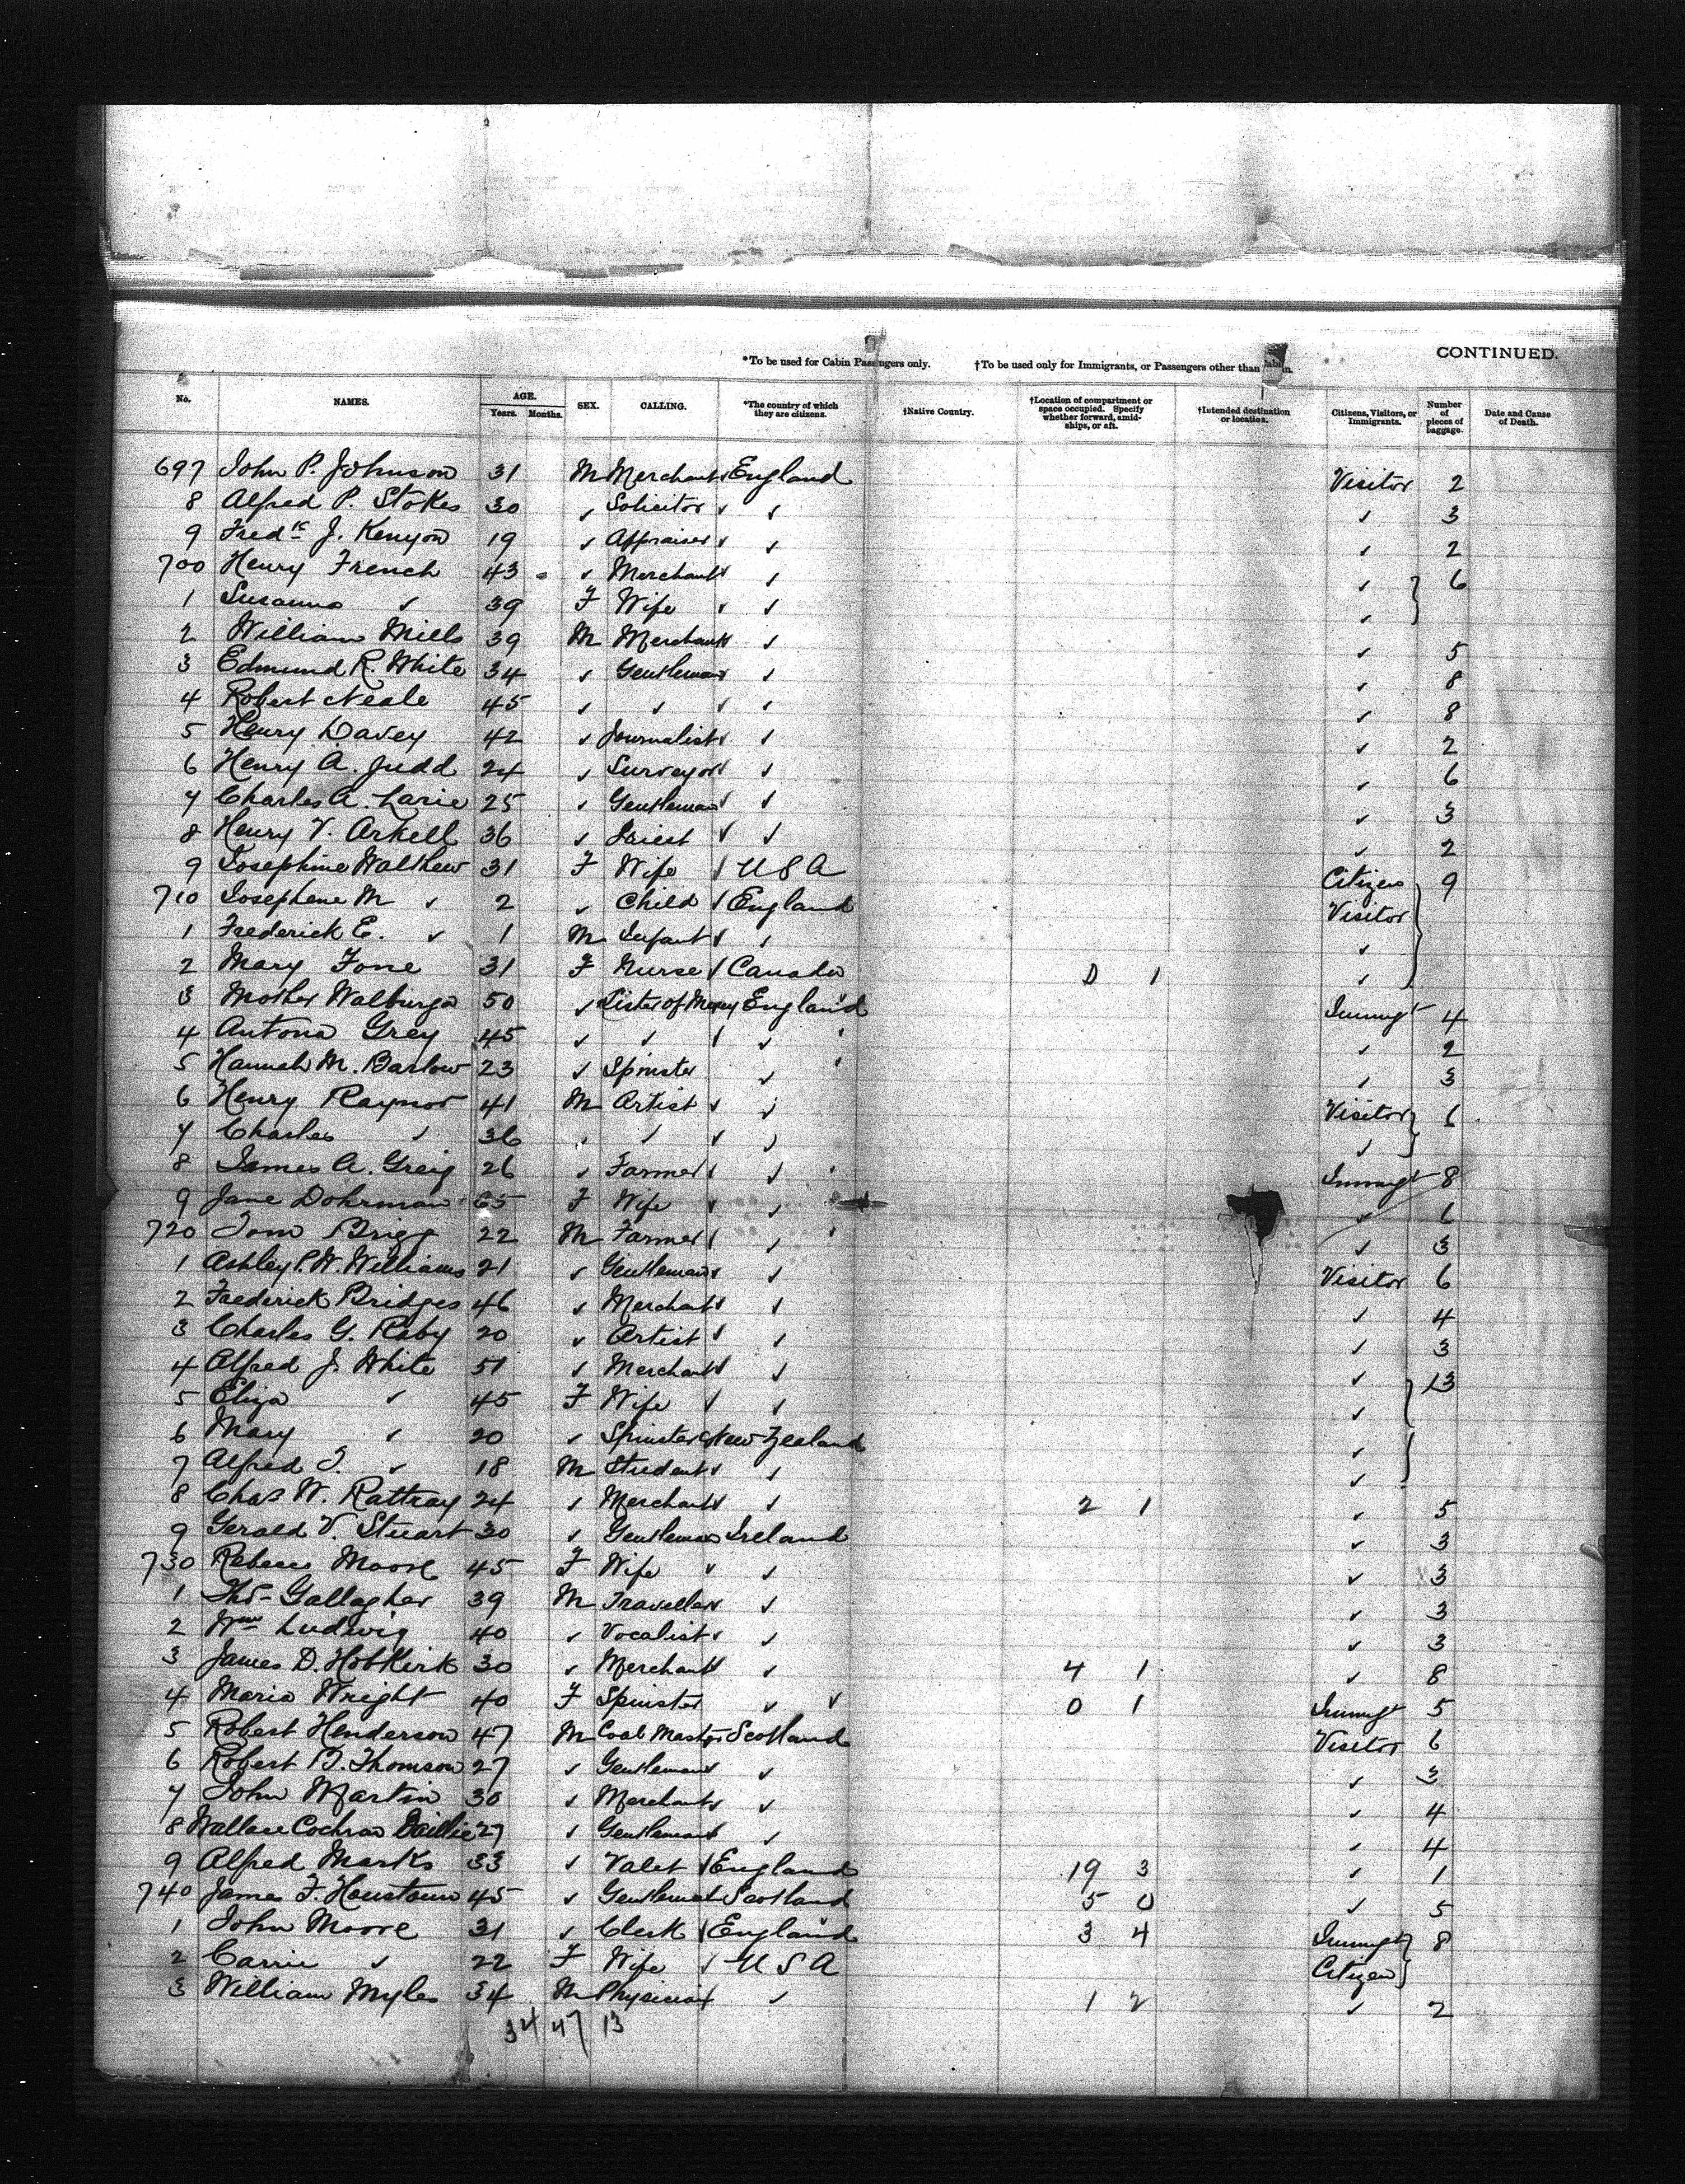 CONTINUED.
*To be used for Cabin Passengers only. †To be used only for Immigrants, or Passengers other than Cabin.
No. NAMES. AGE. Years. Months. SEX. CALLING. *The country of which they are citizens. †Native Country. †Location of compartment or space occupied. Specify whether forward, amidships, or aft. †Intended destination or location. Citizens, Visitors, or Immigrants. Number of pieces of baggage. Date and Cause of Death.
697 John P. Johnson 31 M Merchant England Visitor 2
8 Alfred P. Stokes 30 ✓ Solicitor ✓ ✓ ✓ 3
9 Fredk J. Kenyon 19 ✓ Appraiser ✓ ✓ ✓ 2
700 Henry French 43 ✓ Merchant ✓ ✓ 6
1 Susanna ✓ 39 F Wife ✓ ✓ ✓
2 William Mills 39 M Merchant ✓ ✓ 5
3 Edmund R. White 34 ✓ Gentleman ✓ ✓ 8
4 Robert Neale 45 ✓ ✓ ✓ ✓ ✓ 8
5 Henry Davey 42 ✓ Journalist ✓ ✓ ✓ 2
6 Henry A. Judd 24 ✓ Surveyor ✓ ✓ 6
7 Charles A. Larie 25 ✓ Gentleman ✓ ✓ 3
8 Henry V. Arkell 36 ✓ Priest ✓ ✓ ✓ 2
9 Josephine Walthew 31 F Wife ✓ U S A Citizen 9
710 Josephene M ✓ 2 ✓ Child ✓ England Visitor
1 Frederick E. ✓ 1 M Infant ✓ ✓ ✓
2 Mary Fone 31 F Nurse ✓ Canada D 1 ✓
3 Mother Walburga 50 ✓ Sister of Mercy England Immigt 4
4 Antona Grey 45 ✓ ✓ ✓ ✓ 2
5 Hannah M. Barlow 23 ✓ Spinster ✓ ✓ 3
6 Henry Raynor 41 M Artist ✓ ✓ Visitor 6
7 Charles ✓ 36 ✓ ✓ ✓ ✓ ✓
8 James A. Greig 26 ✓ Farmer ✓ ✓ Immigt 8
9 Jane Dohrman 65 F Wife ✓ ✓ ✓ 6
720 Tom Brigg 22 M Farmer ✓ ✓ 3
1 Ashley P. W. Williams 21 ✓ Gentleman ✓ Visitor 6
2 Frederick Bridges 46 ✓ Merchant ✓ ✓ 4
3 Charles G. Raby 20 ✓ Artist ✓ ✓ ✓ 3
4 Alfred J. White 51 ✓ Merchant ✓ ✓ 13
5 Eliza ✓ 45 F Wife ✓ ✓ ✓
6 Mary ✓ 20 ✓ Spinster New Zealand ✓
7 Alfred J. ✓ 18 M Student ✓ ✓ ✓
8 Chas W. Rattray 24 ✓ Merchant ✓ 2 1 ✓ 5
9 Gerald V. Stuart 30 ✓ Gentleman Ireland ✓ 3
730 Rebecca Moore 45 F Wife ✓ ✓ ✓ 3
1 Thos Gallagher 39 M Traveller ✓ ✓ 3
2 Wm Ludwig 40 ✓ Vocalist ✓ ✓ ✓ 3
3 James D. Hobkirk 30 ✓ Merchant ✓ 4 1 ✓ 8
4 Maria Wright 40 F Spinster ✓ ✓ 0 1 Immigt 5
5 Robert Henderson 47 M Coal Master Scotland Visitor 6
6 Robert B. Thomson 27 ✓ Gentleman ✓ ✓ 3
7 John Martin 30 ✓ Merchant ✓ ✓ ✓ 4
8 Wallace Cochran Baillie 27 ✓ Gentleman ✓ ✓ 4
9 Alfred Marks 33 ✓ Valet England 19 3 ✓ 1
740 James F. Houstoun 45 ✓ Gentleman Scotland 5 0 ✓ 5
1 John Moore 31 ✓ Clerk England 3 4 Immigt 8
2 Carrie ✓ 22 F Wife ✓ U S A Citizen
3 William Myles 34 M Physician ✓ 1 2 ✓ 2
34 47 13